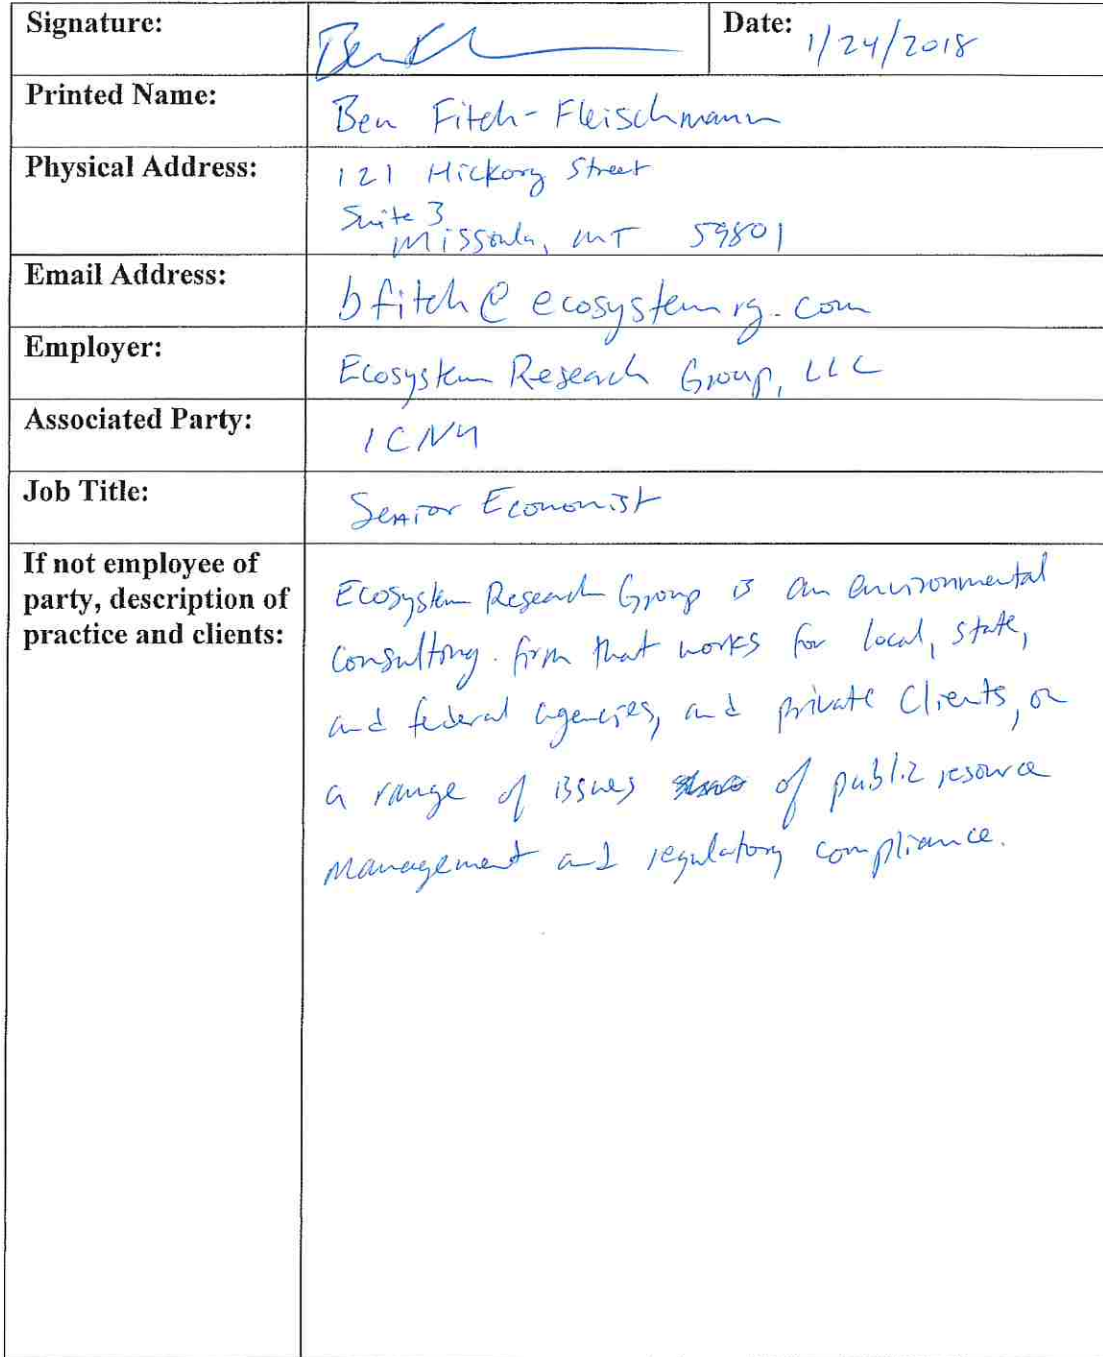 Signature: Date: 1/24/2018
Printed Name: Ben Fitch-Fleischmann
Physical Address: 121 Hickory Street
Suite 3
Missoula, MT 59801
Email Address: bfitch@ecosystemrg.com
Employer: Ecosystem Research Group, LLC
Associated Party: ICNU
Job Title: Senior Economist
If not employee of
party, description of
practice and clients:
Ecosystem Research Group is an environmental
consulting firm that works for local, state,
and federal agencies, and private clients, on
a range of issues of public resource
management and regulatory compliance.